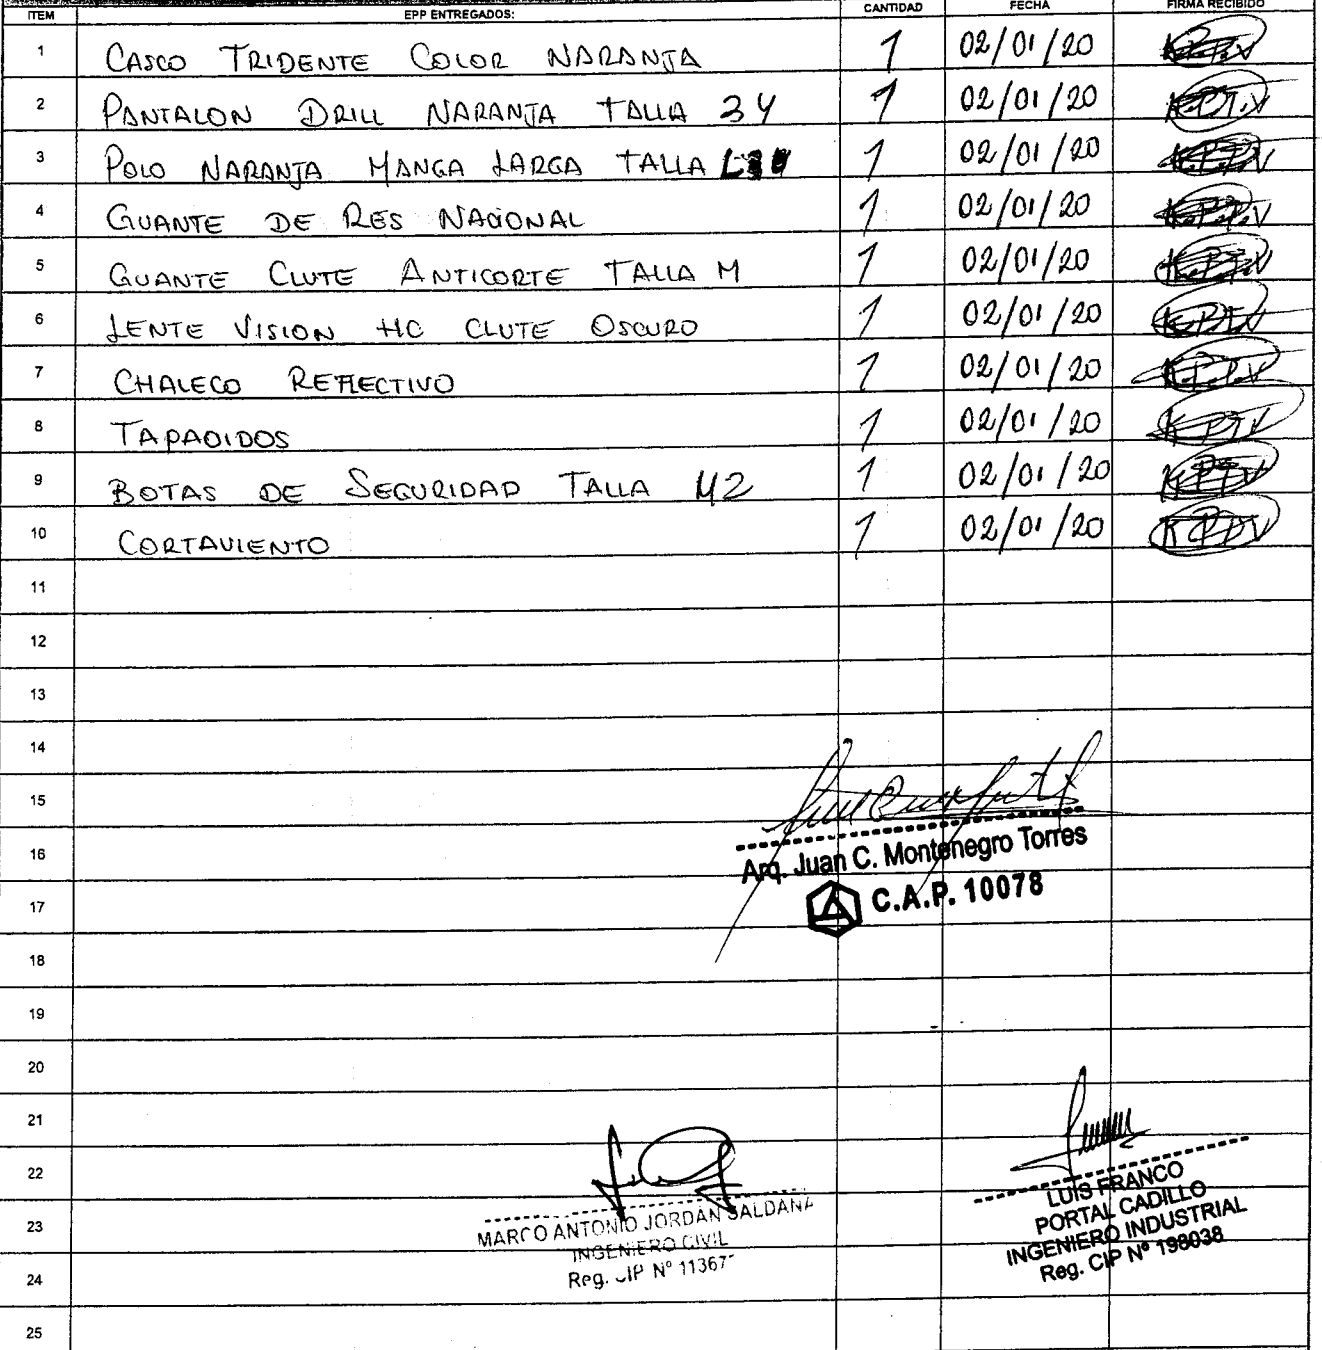 ITEM EPP ENTREGADOS: CANTIDAD FECHA FIRMA RECIBIDO
1 CASCO TRIDENTE COLOR NARANJA 1 02/01/20
2 PANTALON DRILL NARANJA TALLA 34 1 02/01/20
3 POLO NARANJA MANGA LARGA TALLA L 1 02/01/20
4 GUANTE DE RES NACIONAL 1 02/01/20
5 GUANTE CLUTE ANTICORTE TALLA M 1 02/01/20
6 LENTE VISION HC CLUTE OSCURO 1 02/01/20
7 CHALECO REFLECTIVO 1 02/01/20
8 TAPAOIDOS 1 02/01/20
9 BOTAS DE SEGURIDAD TALLA 42 1 02/01/20
10 CORTAVIENTO 1 02/01/20
11
12
13
14
15
16
Arq. Juan C. Montenegro Torres
17
C.A.P. 10078
18
19
20
21
22
23
24
25
MARCO ANTONIO JORDÁN SALDAÑA
INGENIERO CIVIL
Reg. CIP Nº 11367
LUIS FRANCO
PORTAL CADILLO
INGENIERO INDUSTRIAL
Reg. CIP Nº 198038